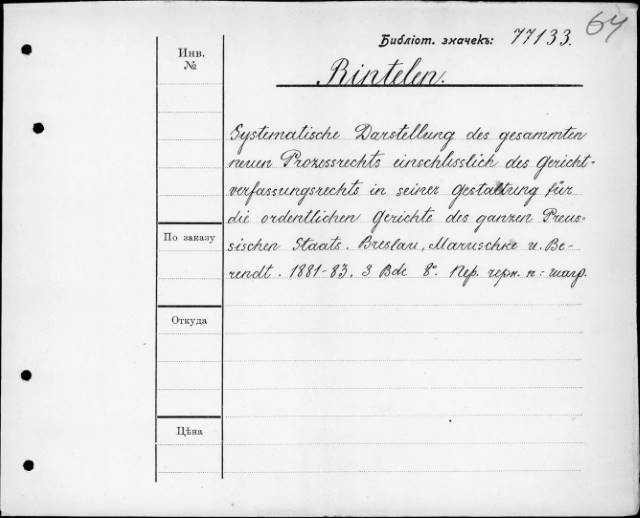 64
Библіот. значекъ: 77133.
Инв.
№
Rintelen.
Systematische Darstellung des gesammten
neuen Prozessrechts einschlisslich des Gericht-
verfassungsrechts in seiner Gestaltung für
die ordentlichen Gerichte des ganzen Preus-
По заказу
sischen Staats. Breslau, Maruschke u. Be-
rendt. 1881-83. 3 Bde 8º. Пер. черн. п: шагр.
Откуда
Цѣна